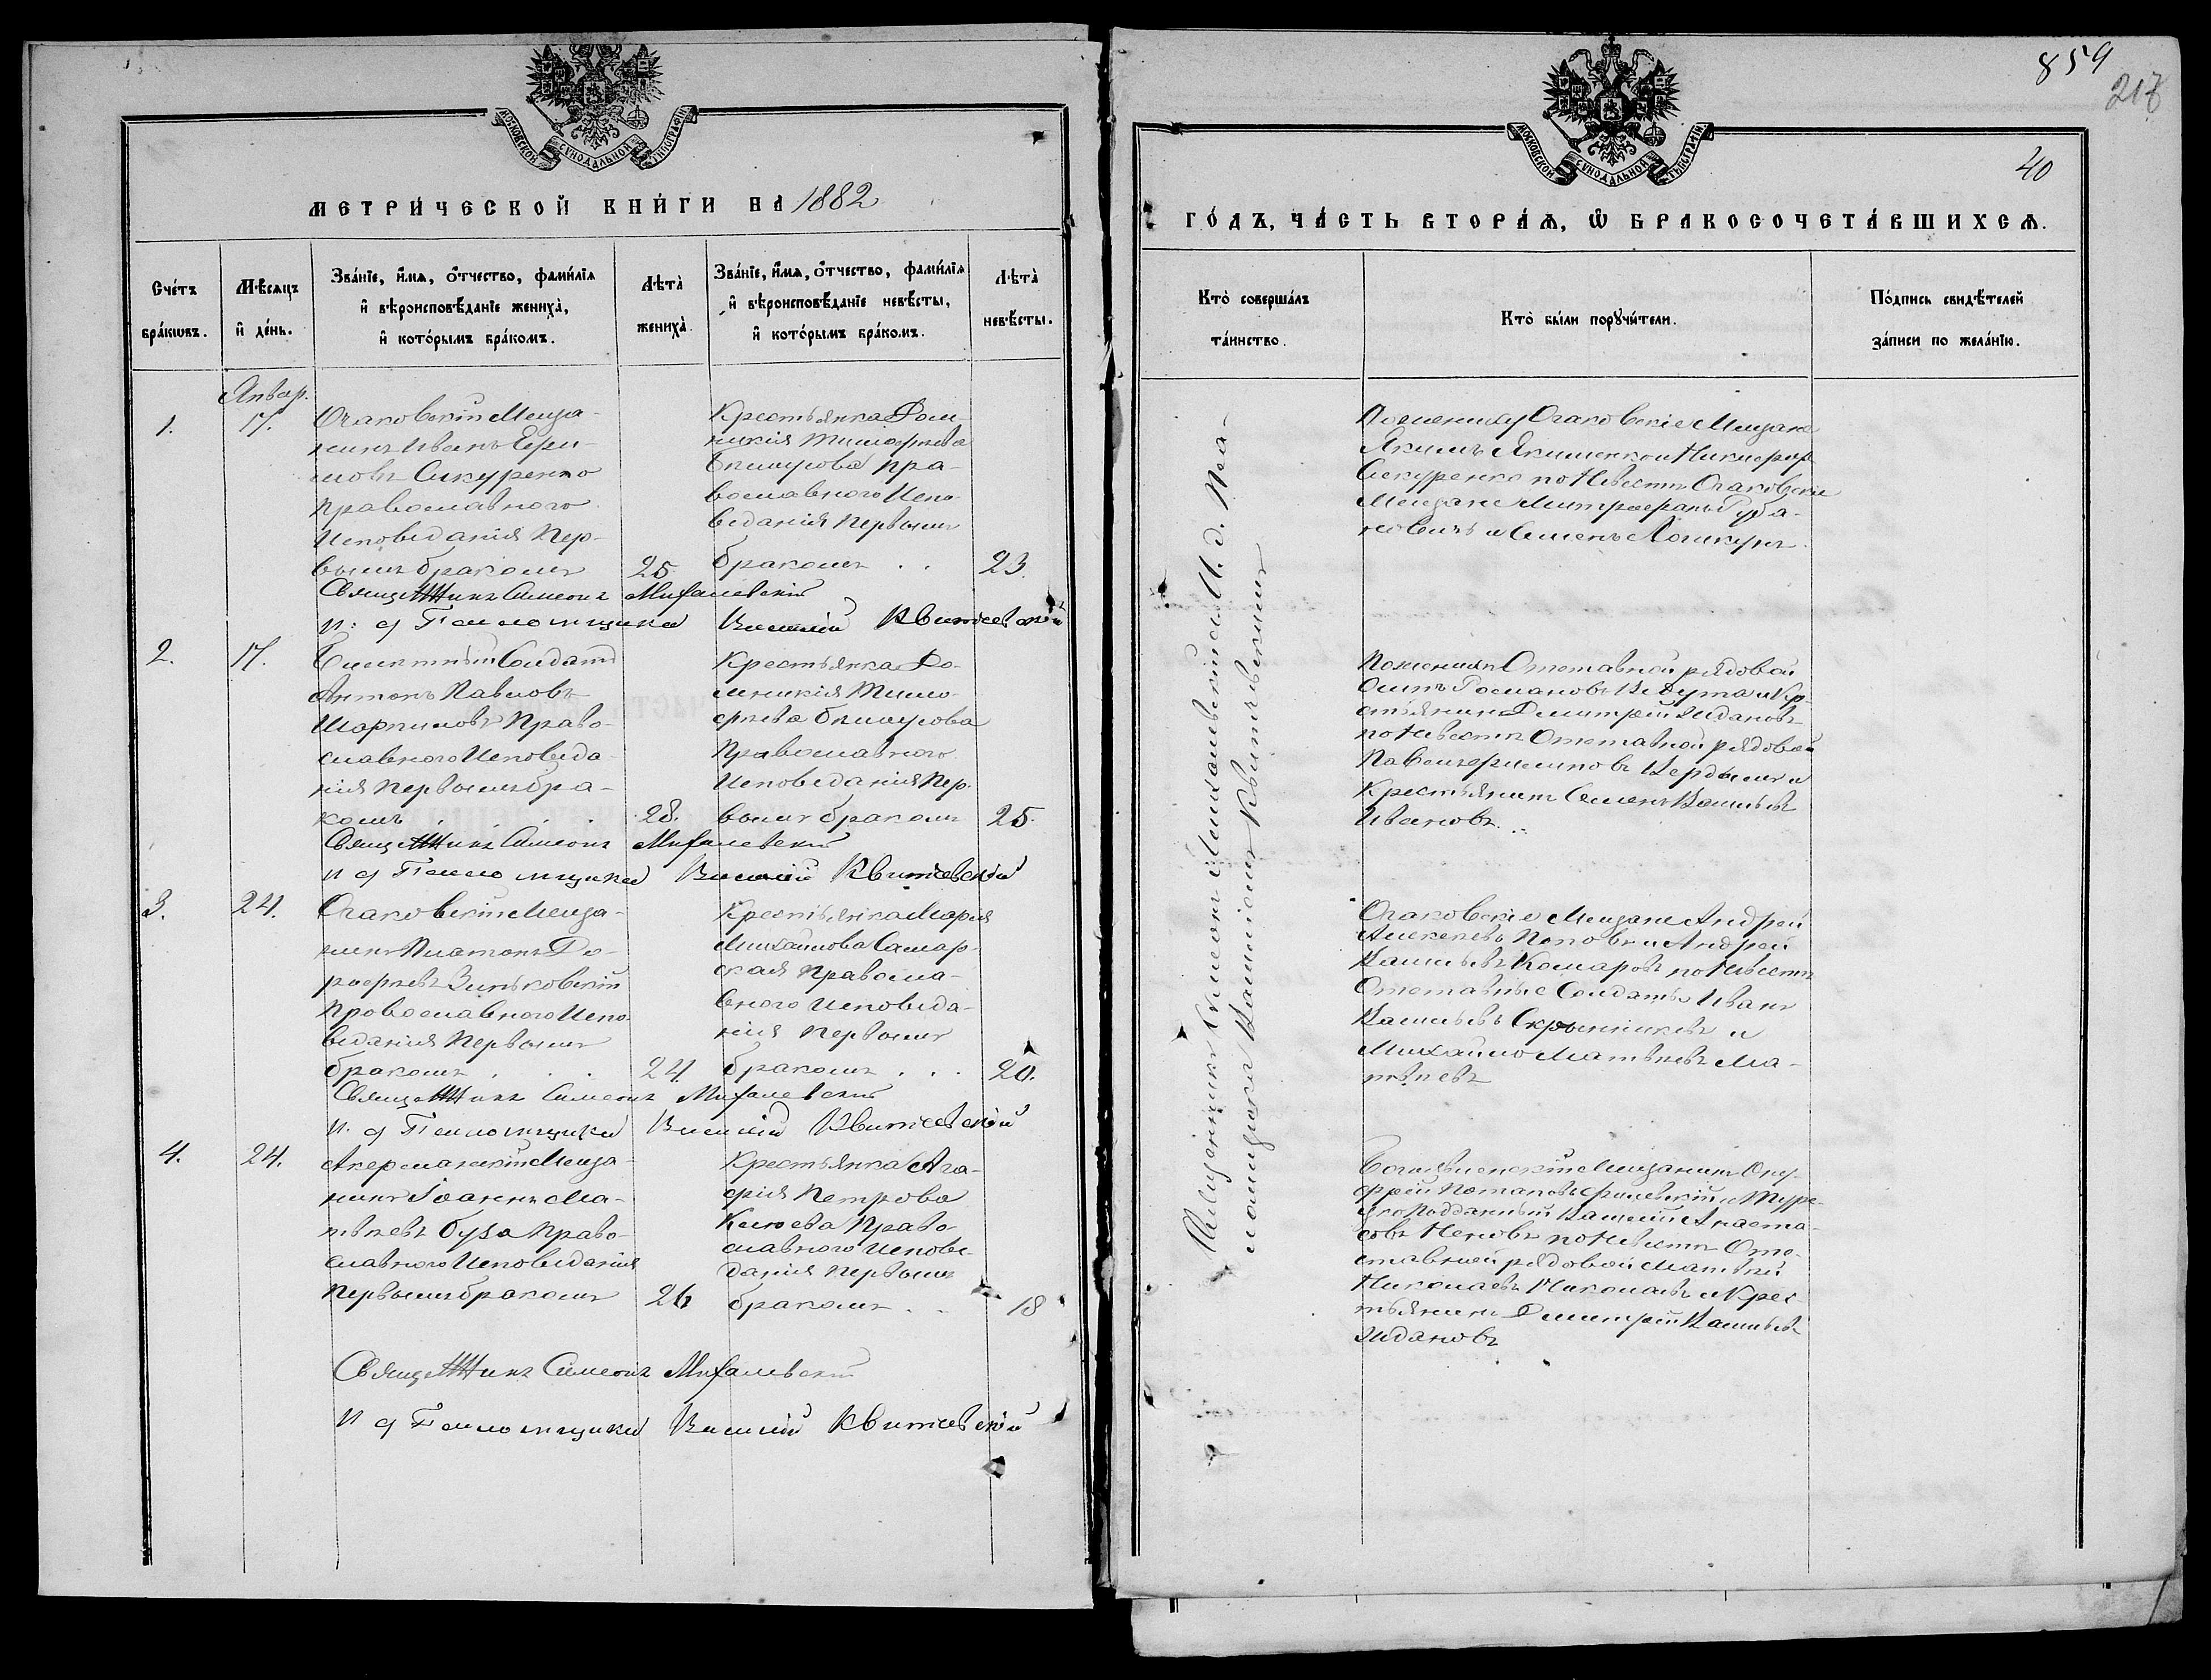 МОСКОВСКОЙ СѴНОДАЛЬНОЙ ТИПОГРАФІИ
МЕТРИ́ЧЕСКОЙ КНИ́ГИ НА 1882
Сче́тъ бра́кѡвъ.
Мѣ́сяцъ и҆ де́нь.
Зва́нїе, и҆́мѧ, ѻ҆́тчество, фами́лїѧ
и҆ вѣроисповѣ́данїе жениха̀,
и҆ кото́рымъ бра́комъ.
Лѣта̀ жениха̀.
Зва́нїе, и҆́мѧ, ѻ҆́тчество, фами́лїѧ
и҆ вѣроисповѣ́данїе невѣ́сты,
и҆ кото́рымъ бра́комъ.
Лѣта̀ невѣ́сты.
Январ.
1.
17.
Очаковскій Меща-
нинъ Иванъ Ефи-
мовъ Сикуренко
Православнаго
Исповѣданія Пер-
вымъ бракомъ
25
Крестьянка Дом-
никія Тимофѣева
пра-
вославного Испо-
вѣданія первымъ
бракомъ . .
23.
Священникъ Симеонъ Михалевскій
И. д Псаломщика Василій Квитковскій
2.
17.
Билетный Солдатъ
Антонъ Павловъ
Шарпиловъ Право-
славного Исповѣда-
нія первымъ бра-
комъ . . .
28.
Крестьянка До-
мникія Тимо-
фѣева
Православного
Исповѣданія Пер-
вымъ бракомъ
25.
Священникъ Симеонъ Михалевскій
И д Псаломщика Василій Квитковскій
3.
24.
Очаковскій Меща-
нинъ Платонъ До-
рофѣевъ Зиньковскій
Православного Испо-
вѣданія Первымъ
бракомъ . . .
24.
Крестьянка Марія
Михайлова Самар-
ская Правосла-
вного Исповѣда-
нія Первымъ
бракомъ . . .
20.
Священникъ Симеонъ Михалевскій
И. д Псаломщика Василій Квитковскій
4.
24.
Акерманскій Меща-
нинъ Іоаннъ Ма-
твѣевъ Буза Право-
славного Исповѣданія
Первымъ бракомъ
26
Крестьянка Ага-
фія Петрова
Право-
славного Исповѣ-
данія Первымъ
бракомъ . .
18
Священникъ Симеонъ Михалевскій
И д Псаломщика Василій Квитковскій
859
217
40
МОСКОВСКОЙ СѴНОДАЛЬНОЙ ТѴПОГРАФІИ
ГО́ДЪ, ЧА́СТЬ ВТОРА́Ѧ, Ѽ БРАКОСОЧЕТА́ВШИХСѦ.
Кто̀ соверша́лъ та́инство.
Кто̀ бы́ли порꙋчи́тели.
По́дпись свидѣ́телей за́писи по жела́нїю.
Священникъ Симеонъ Михалевскій и И. д. Пса-
ломщика Василій Квитковскій
По жениху Очаковскіе Мещане
Якимъ Якименко и Никифоръ
Секуренко по Невѣстѣ Очаковскіе
Мещане Митрофанъ Руба-
новичъ и Семенъ
По женихѣ Отставной рядовой
Осипъ Романовъ и Кр-
стьянинъ Димитрій Ждановъ
по Невѣстѣ Отставной рядовой
Павелъ
Крестьянинъ Семенъ Васильевъ
Ивановъ
Очаковскіе Мещане Андрей
Алексѣевъ Поповъ и Андрей
Васильевъ Комаровъ по Невѣстѣ
Отставные Солдаты Иванъ
Васильевъ Скрынниковъ и
Михайло Матвѣевъ Ма-
твѣевъ
Мещанинъ Ону-
фрій Потаповъ и Туре-
цкоподданный Василій Анаста-
совъ по Невѣстѣ Отс-
ставной рядовой Матвѣй
Николаевъ Николаевъ и Крес-
тьянинъ Димитрій Васильевъ
Ждановъ